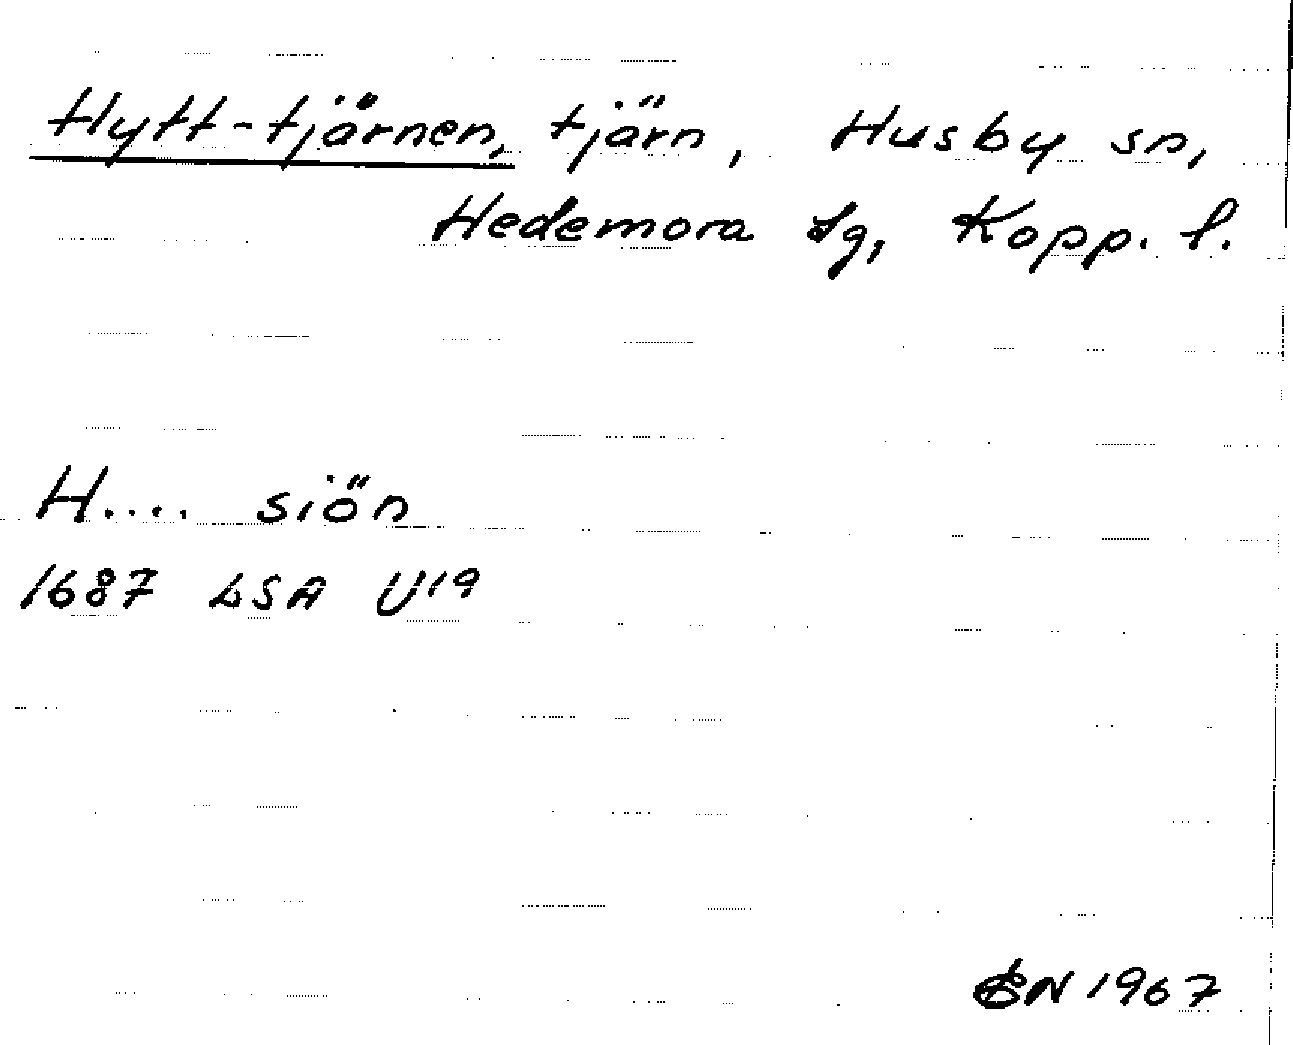 Hytt-tjärnen, tjärn, Husby sn,
Hedemora tg, Kopp. l.
H.... siön
1687 LSA U19
EN 1967